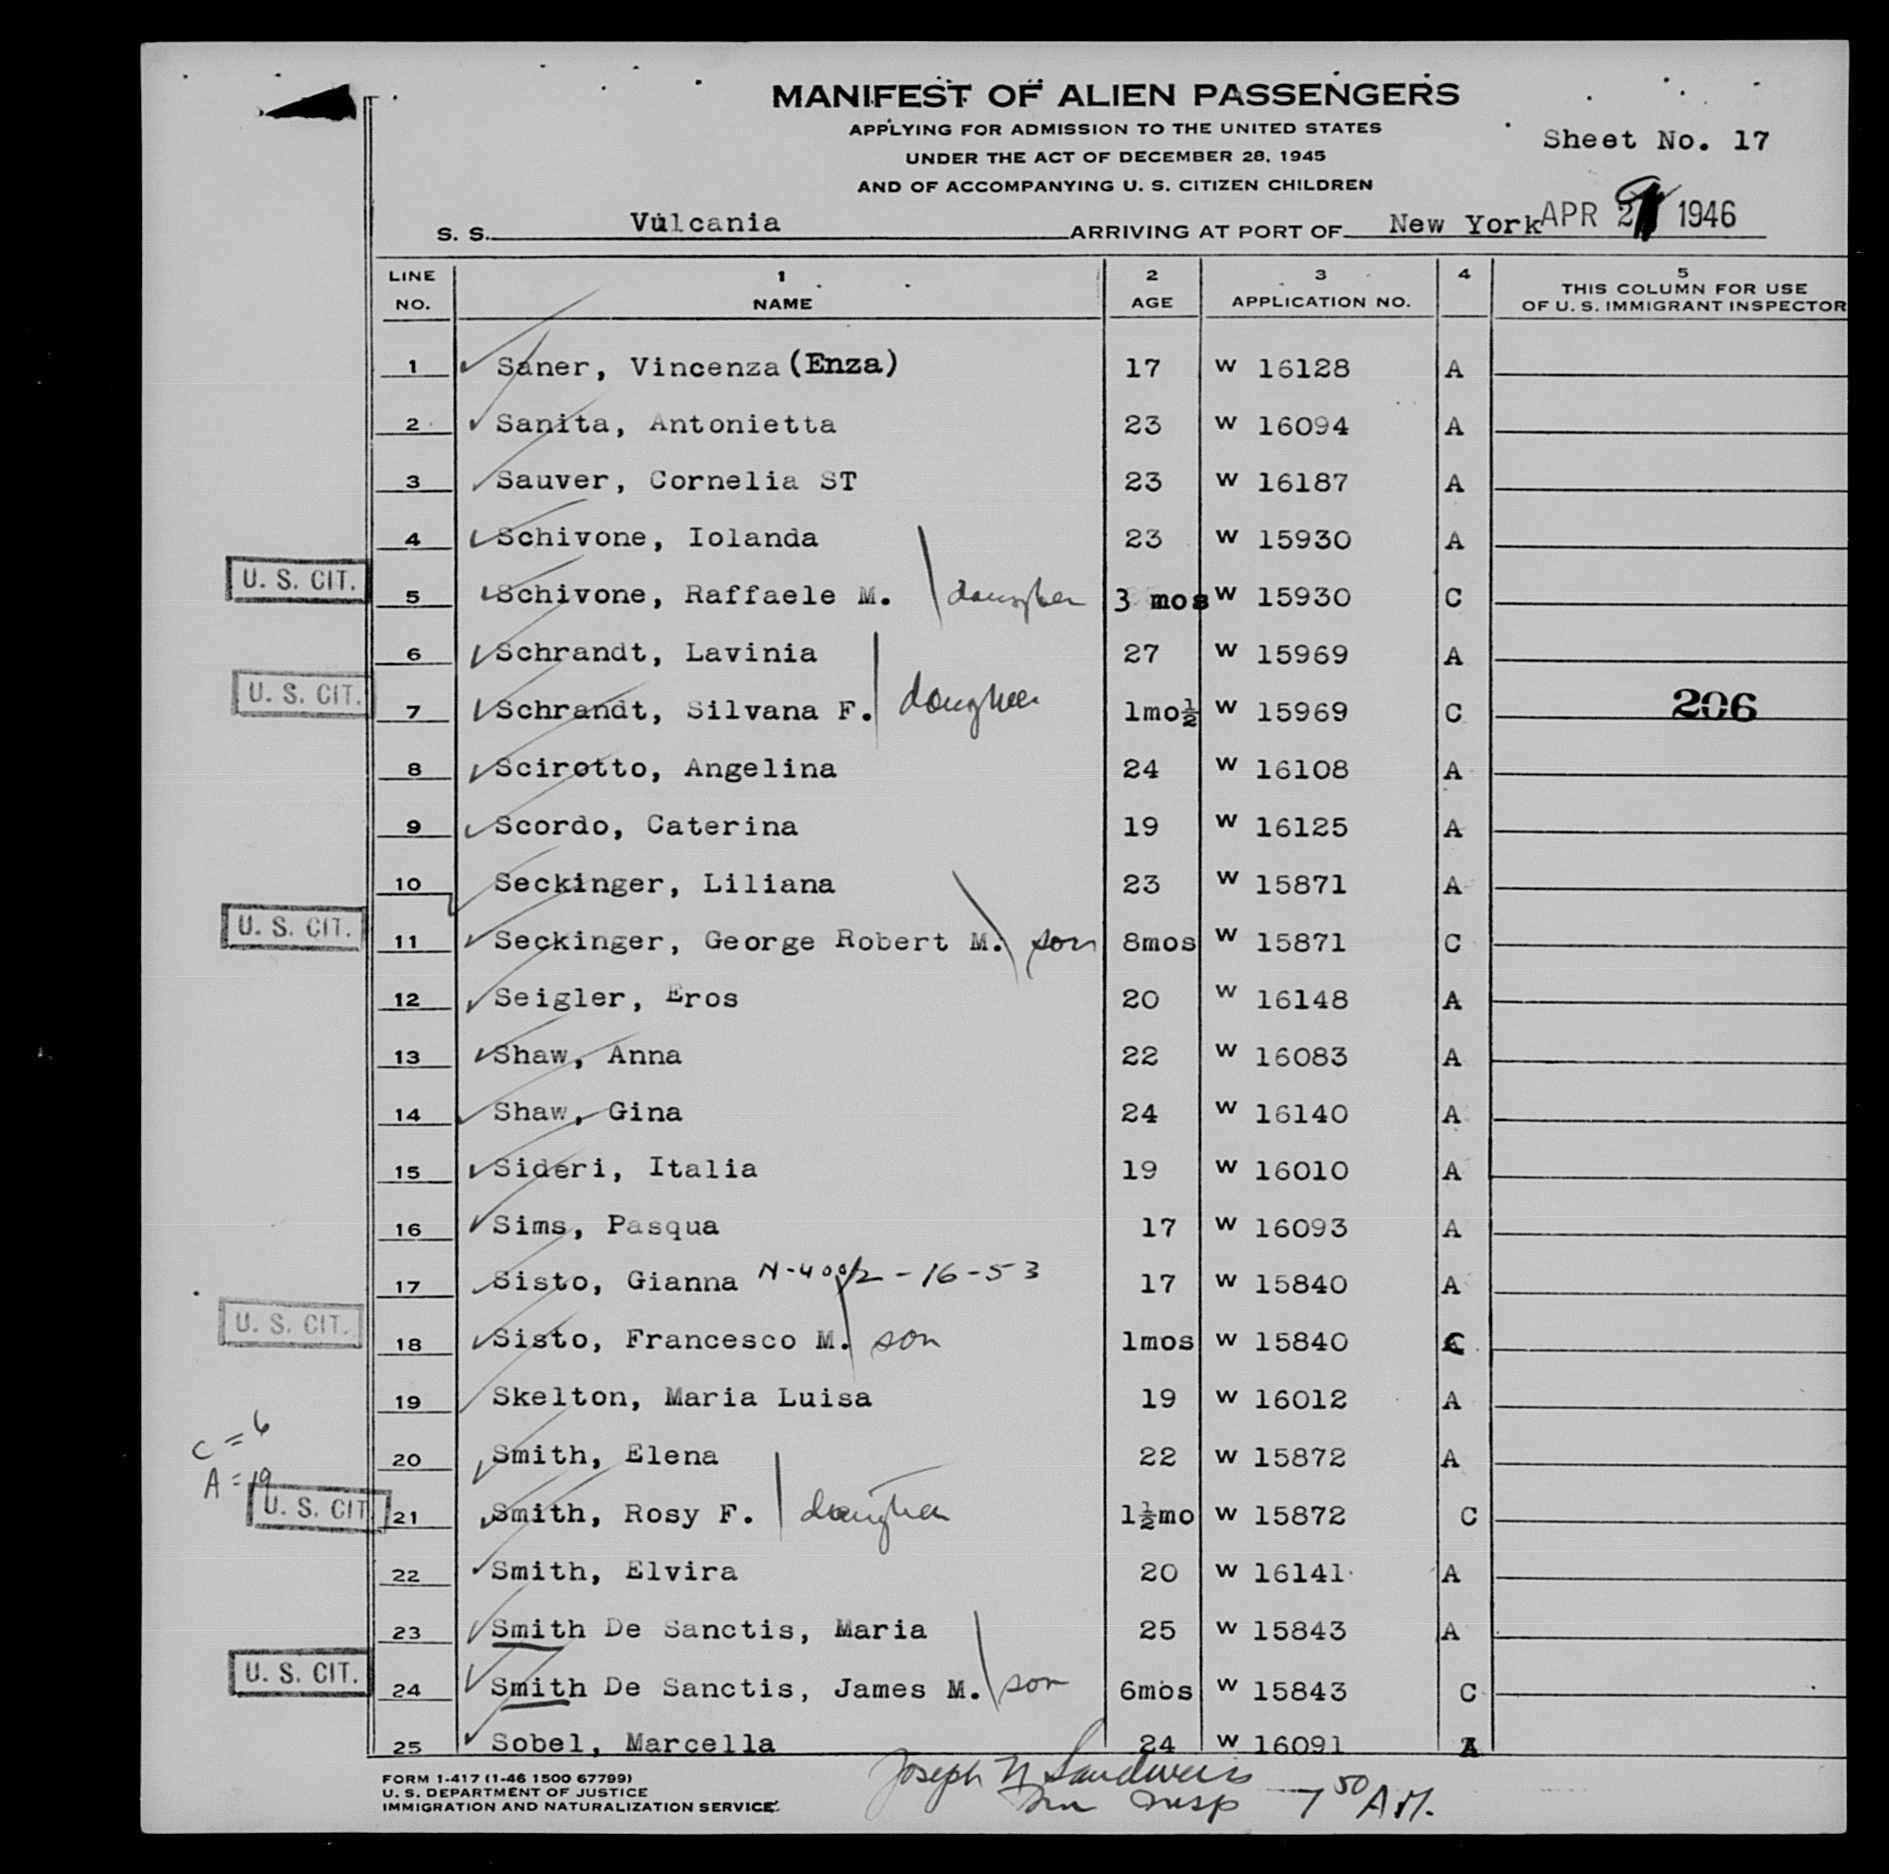 MANIFEST OF ALIEN PASSENGERS
APPLYING FOR ADMISSION TO THE UNITED STATES
UNDER THE ACT OF DECEMBER 28, 1945
AND OF ACCOMPANYING U. S. CITIZEN CHILDREN
Sheet No. 17
S. S. Vulcania ARRIVING AT PORT OF New York APR 1946
LINE NO. 1 NAME 2 AGE 3 APPLICATION NO. 4 5 THIS COLUMN FOR USE OF U. S. IMMIGRANT INSPECTOR
1 Saner, Vincenza (Enza) 17 W 16128 A
2 Sanita, Antonietta 23 W 16094 A
3 Sauver, Cornelia ST 23 W 16187 A
4 Schivone, Iolanda 23 W 15930 A
U. S. CIT. 5 Schivone, Raffaele M. daughter 3 mos W 15930 C
6 Schrandt, Lavinia 27 W 15969 A
U. S. CIT. 7 Schrandt, Silvana F. daughter 1mo½ W 15969 C 206
8 Scirotto, Angelina 24 W 16108 A
9 Scordo, Caterina 19 W 16125 A
10 Seckinger, Liliana 23 W 15871 A
U. S. CIT. 11 Seckinger, George Robert M. son 8mos W 15871 C
12 Seigler, Eros 20 W 16148 A
13 Shaw, Anna 22 W 16083 A
14 Shaw, Gina 24 W 16140 A
15 Sideri, Italia 19 W 16010 A
16 Sims, Pasqua 17 W 16093 A
17 Sisto, Gianna N-400/2-16-53 17 W 15840 A
U. S. CIT. 18 Sisto, Francesco M. son 1mos W 15840 C
19 Skelton, Maria Luisa 19 W 16012 A
C = 6
20 Smith, Elena 22 W 15872 A
A = 19
U. S. CIT 21 Smith, Rosy F. daughter 1½mo W 15872 C
22 Smith, Elvira 20 W 16141 A
23 Smith De Sanctis, Maria 25 W 15843 A
U. S. CIT. 24 Smith De Sanctis, James M. son 6mos W 15843 C
25 Sobel, Marcella 24 W 16091 A
Joseph N Sandweis
Imm Insp 7 50 A.M.
FORM 1-417 (1-46 1500 67799)
U. S. DEPARTMENT OF JUSTICE
IMMIGRATION AND NATURALIZATION SERVICE